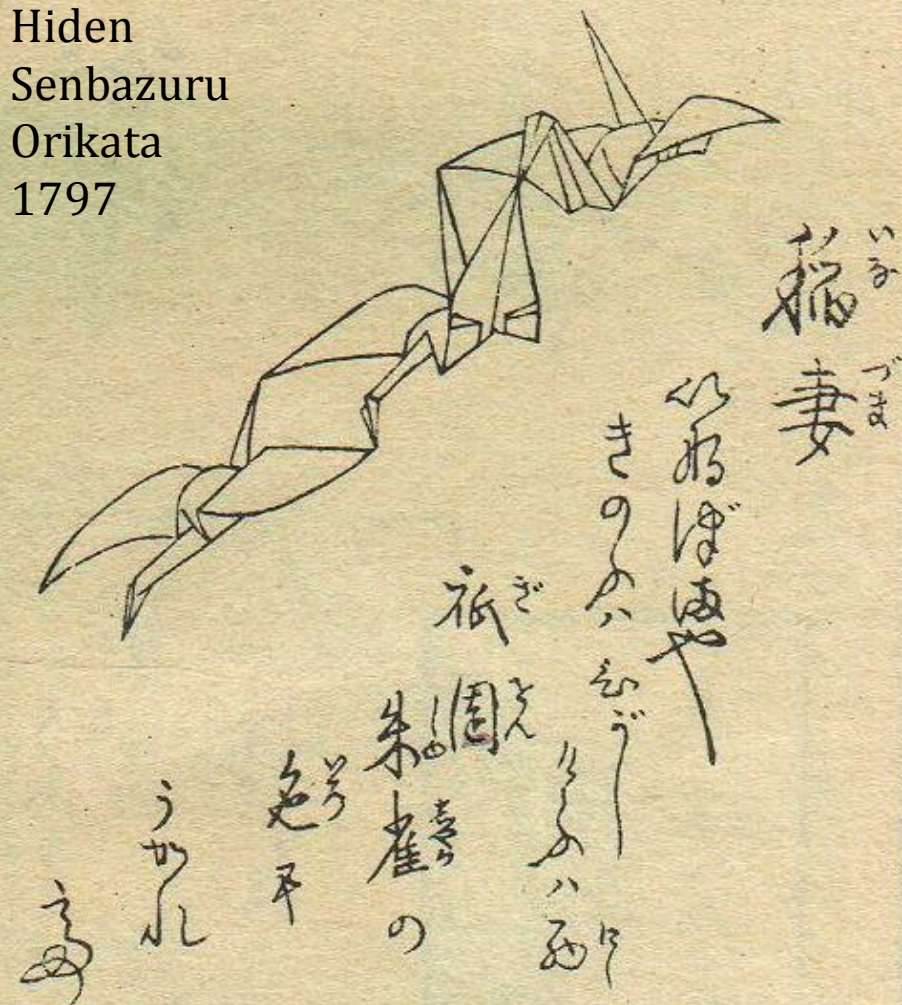 Hiden
Senbazuru
Orikata
1797
稲妻
いなづま
いなづまや
きのふハひがし
けふハ西
にし
祇園
ぎをん
朱雀の
色に
いろ
うかれ